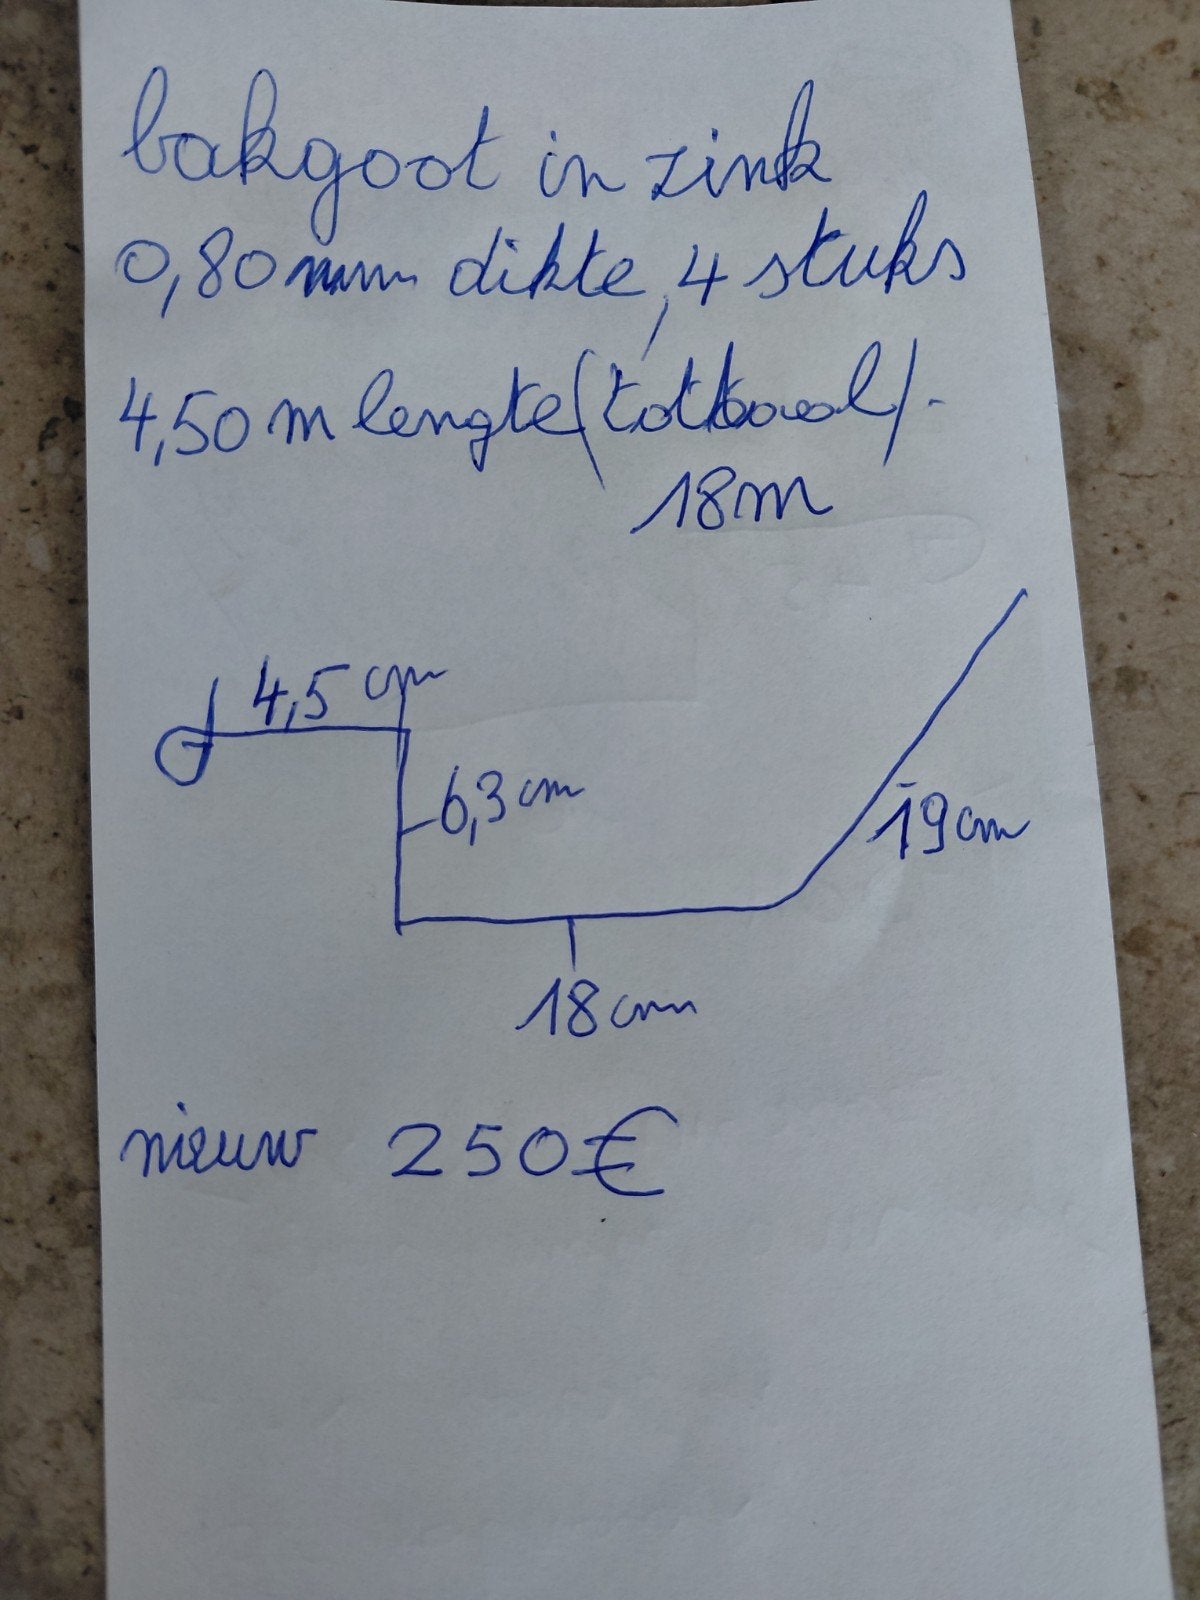 bakgoot in zink
0,80 mm dikte, 4 stuks
4,50 m lengte (totaal).
18m
4,5 cm
6,3 cm
19 cm
18 cm
nieuw 250€